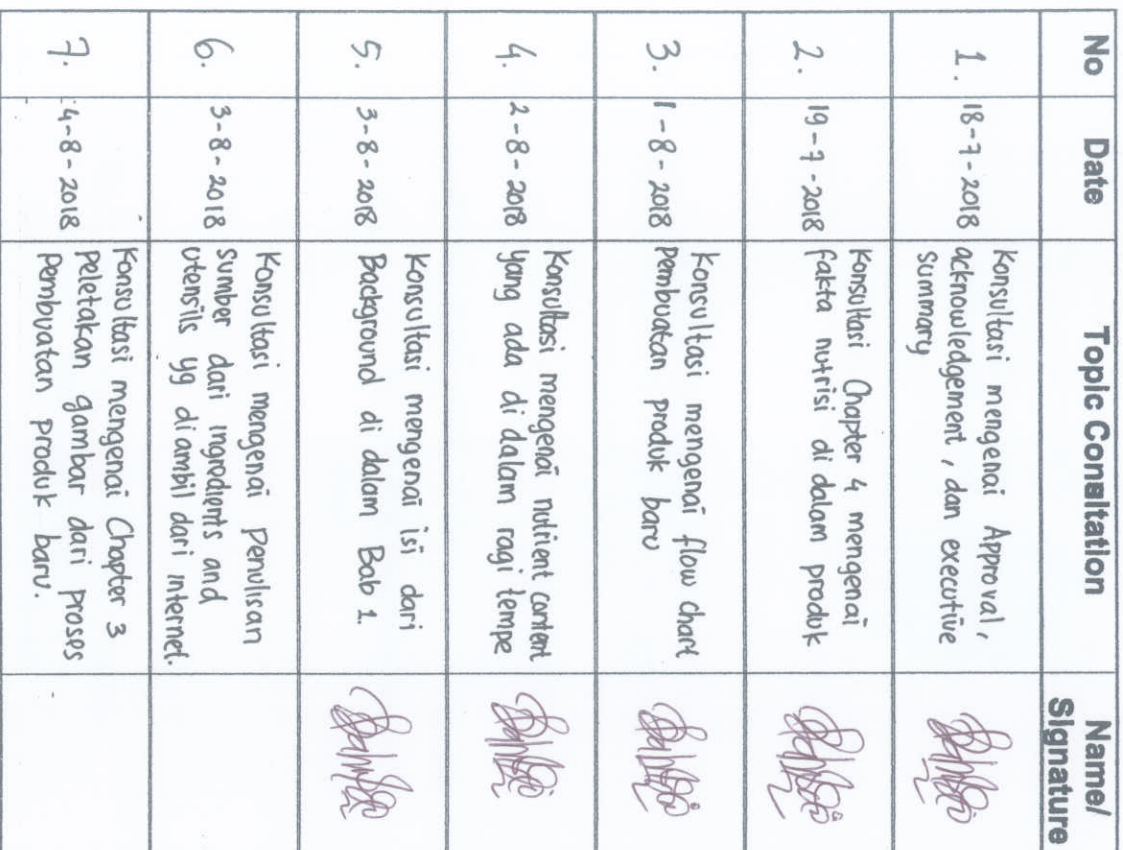 No Date Topic Consltation Name/
Signature
1. 18-7-2018 Konsultasi mengenai Approval,
acknowledgement, dan executive
summary
2. 19-7-2018 Konsultasi Chapter 4 mengenai
fakta nutrisi di dalam produk
3. 1-8-2018 Konsultasi mengenai flow chart
pembuatan produk baru
4. 2-8-2018 Konsultasi mengenai nutrient content
yang ada di dalam ragi tempe
5. 3-8-2018 Konsultasi mengenai isi dari
Background di dalam Bab 1.
6. 3-8-2018 Konsultasi mengenai penulisan
sumber dari ingredients and
utensils yg diambil dari internet.
7. 4-8-2018 Konsultasi mengenai Chapter 3
peletakan gambar dari proses
pembuatan produk baru.